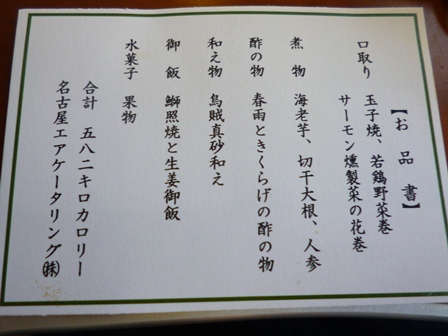 【お品書】
口取り　玉子焼、若鶏野菜巻
サーモン燻製菜の花巻
煮物　海老芋、切干大根、人参
酢の物　春雨ときくらげの酢の物
和え物　烏賊真砂和え
御飯　鰤照焼と生姜御飯
水菓子　果物
合計　五八二キロカロリー
名古屋エアケータリング㈱